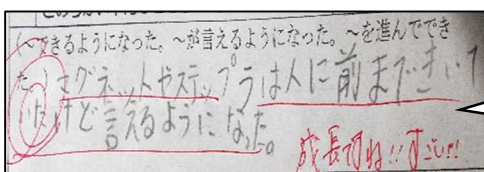 (～できるようになった。～が言えるようになった。～を進んででき
た。)マグネットやステップラは人に前まできいて
いたけど言えるようになった。
成長ですね!!すごい!!